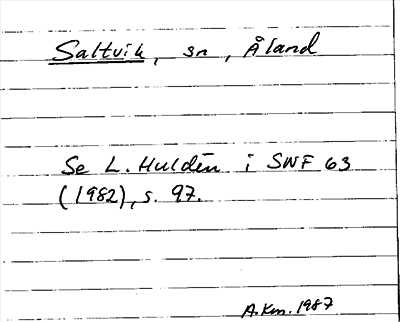 Saltvik, sn, Åland
Se L. Huldén i SNF 63
(1982), s. 97.
A.Km. 1987